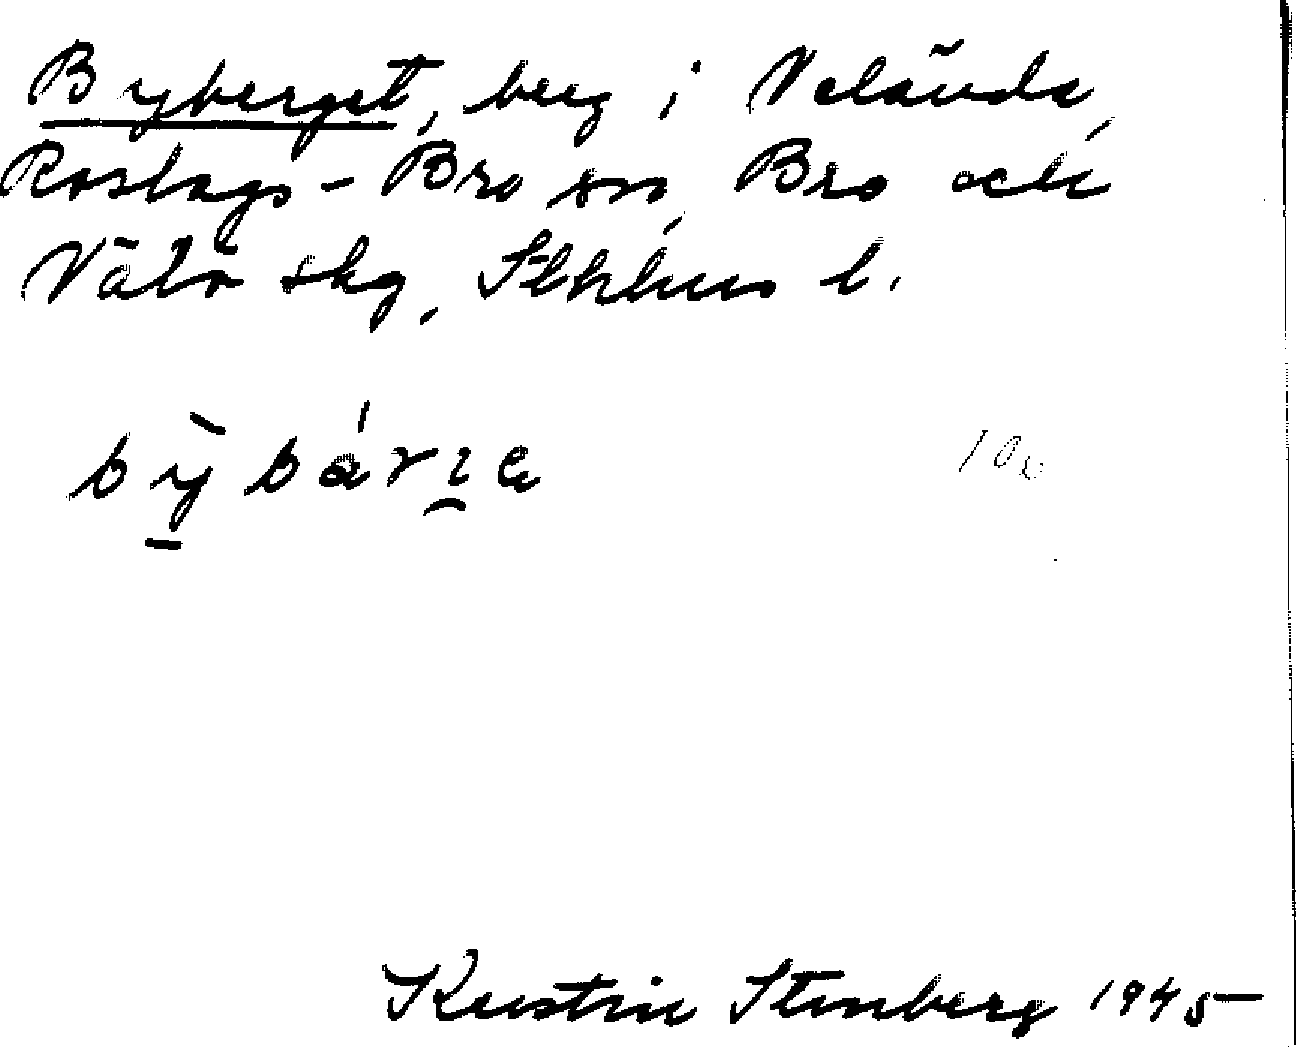 Byberget, berg i Velända,
Roslags-Bro sn, Bro och
Vätö skg, Sthlms l.
bỳbárıe
10e
Kerstin Stenberg 1945